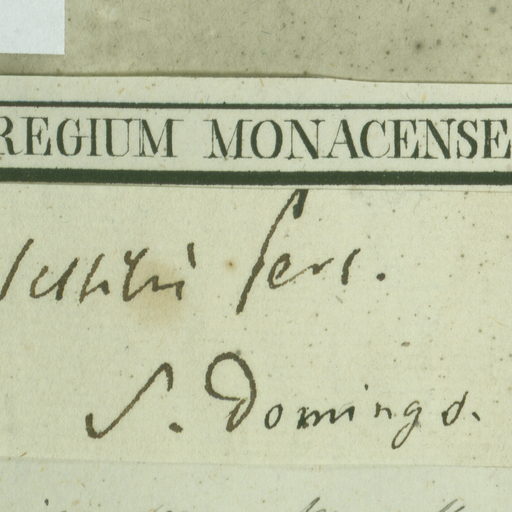 REGIUM MONACENSE
Pers.
S. Domingo.